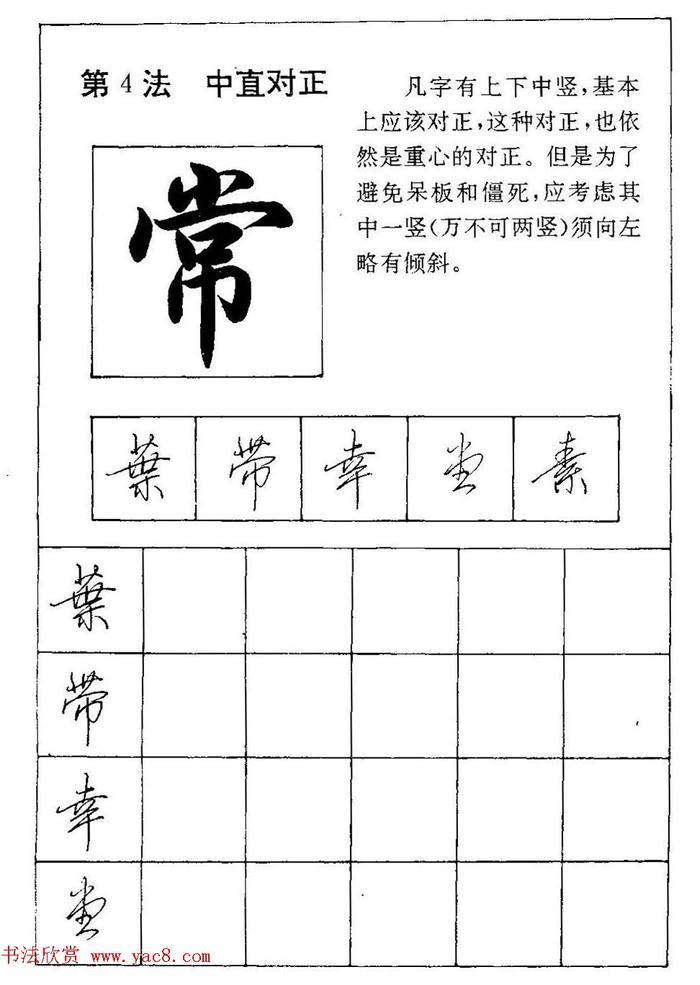 第4法 中直对正
凡字有上下中竖,基本
上应该对正,这种对正,也依
然是重心的对正。但是为了
避免呆板和僵死,应考虑其
中一竖(万不可两竖)须向左
略有倾斜。
常
葉 带 幸 堂 素
葉
带
幸
堂
书法欣赏 www.yac8.com